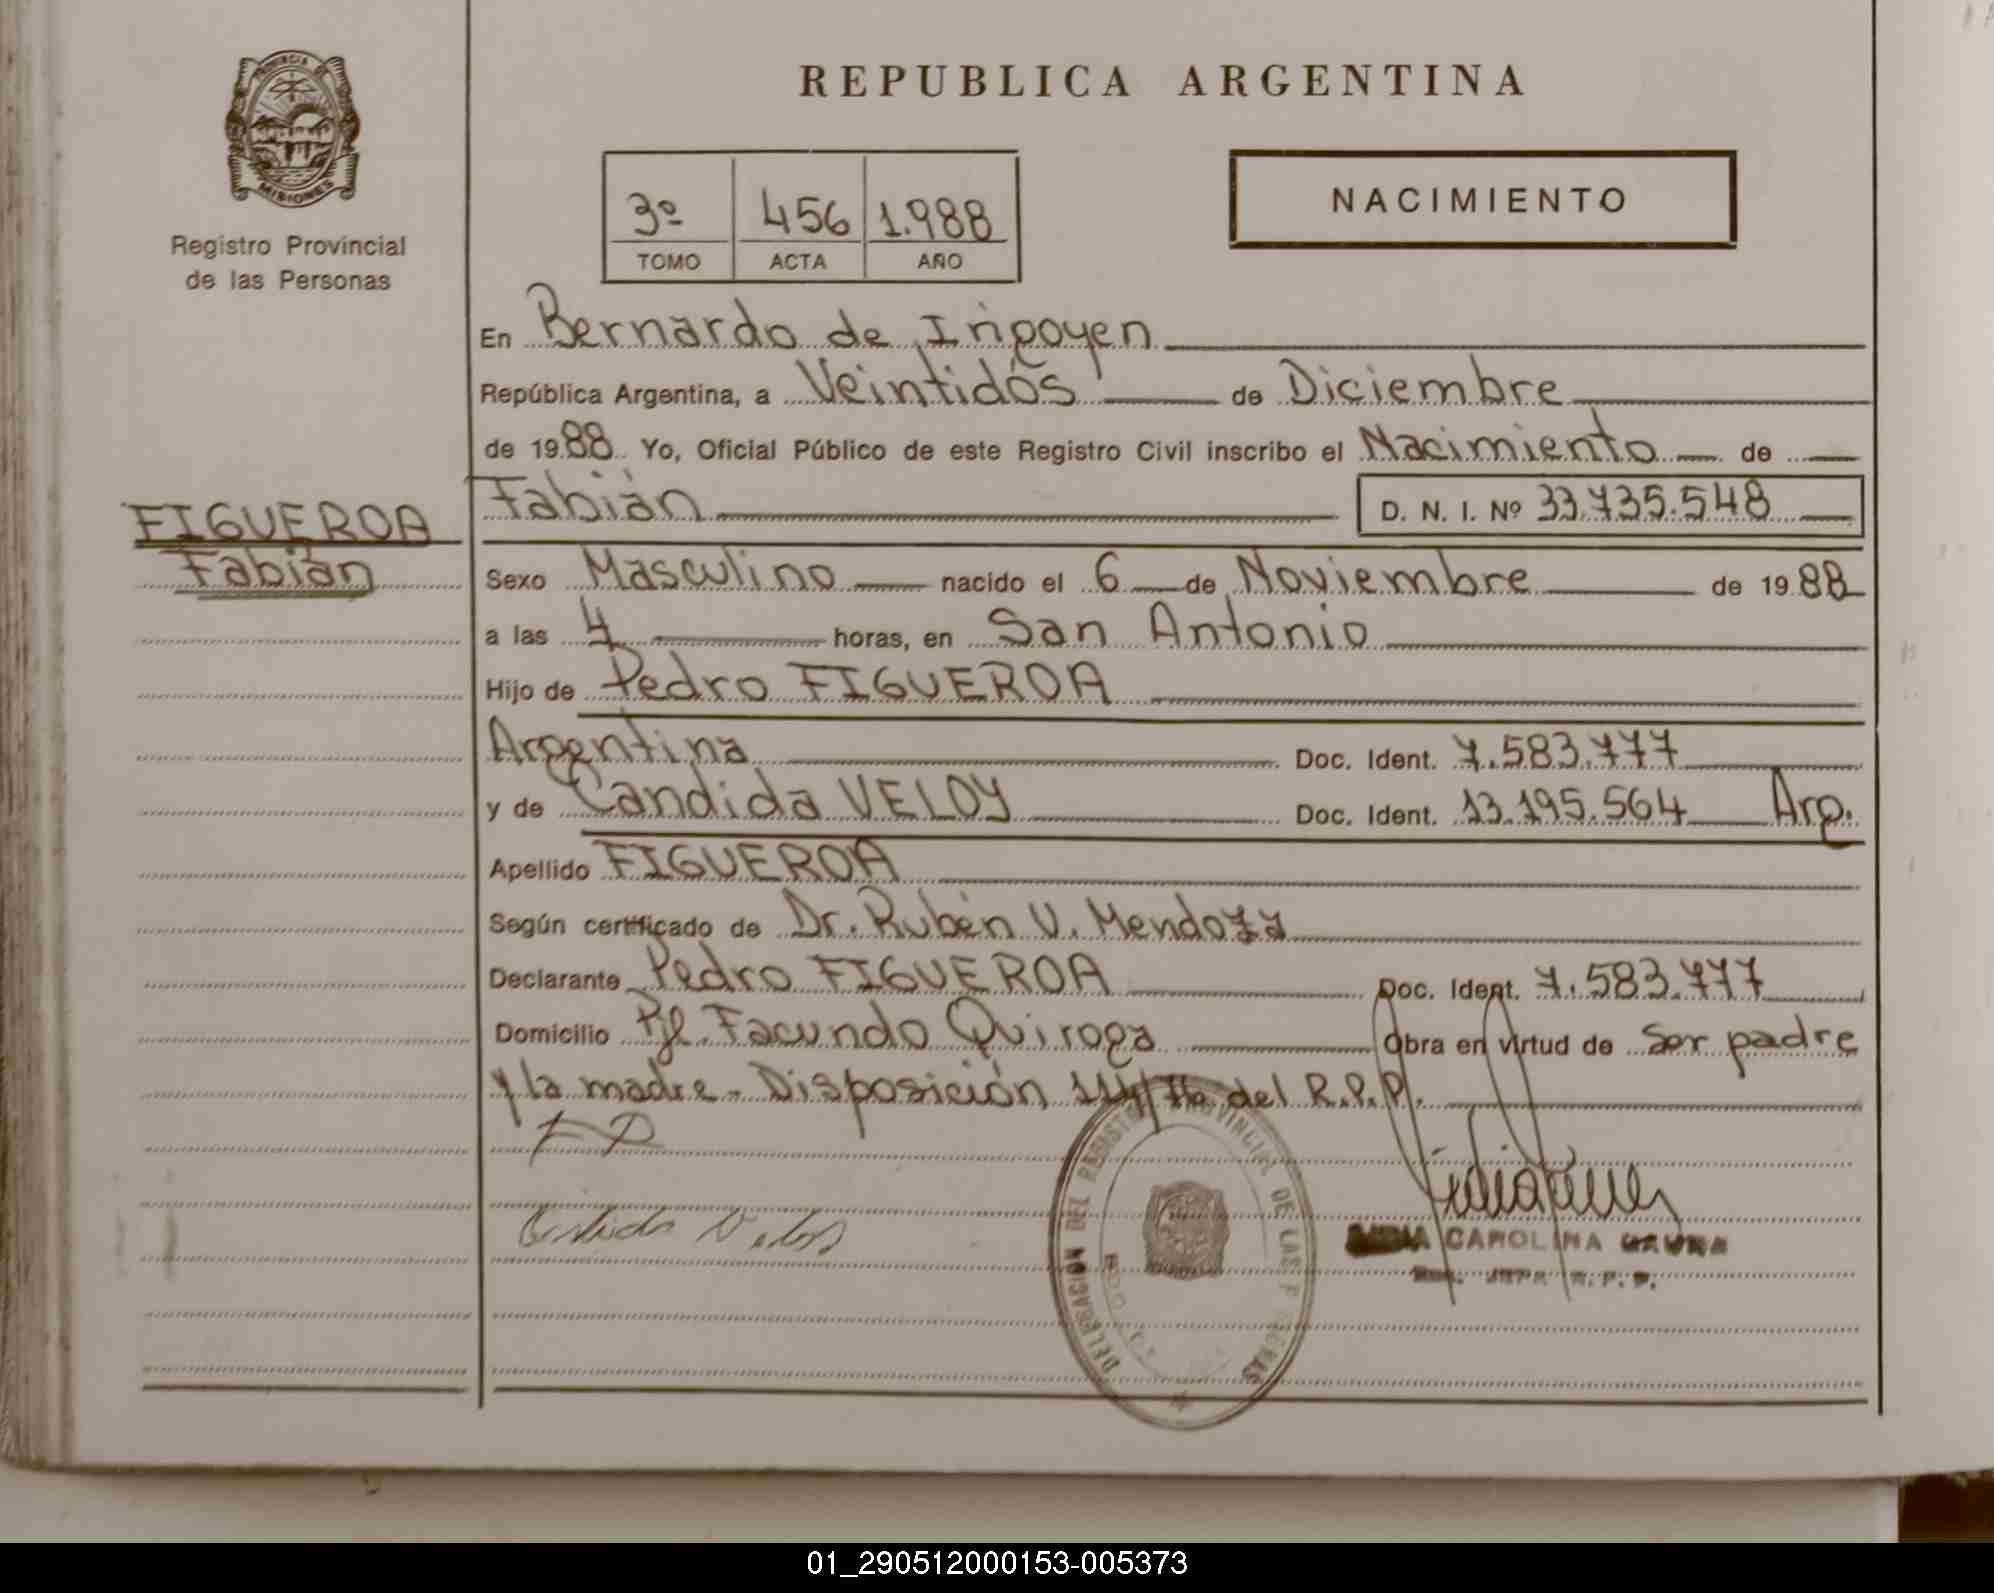 PROVINCIA DE
MISIONES
Registro Provincial
de las Personas
REPUBLICA ARGENTINA
3º 456 1.988
TOMO ACTA AÑO
NACIMIENTO
En Bernardo de Irigoyen
República Argentina, a Veintidós de Diciembre
de 1988 Yo, Oficial Público de este Registro Civil inscribo el Nacimiento de
FIGUEROA
Fabián
Fabián D. N. I. Nº 33.735.548
Sexo Masculino nacido el 6 de Noviembre de 1988
a las 4 horas, en San Antonio
Hijo de Pedro FIGUEROA
Argentina Doc. Ident. 7.583.777
y de Candida VELOY Doc. Ident. 13.195.564 Arg.
Apellido FIGUEROA
Según certificado de Dr. Rubén V. Mendoza
Declarante Pedro FIGUEROA Doc. Ident. 7.583.777
Domicilio Pje. Facundo Quiroga Obra en virtud de ser padre
y la madre - Disposición del R.P.P.
DELEGACION DEL REGISTRO PROVINCIAL DE LAS
CAROLINA
R.P.P.
01_290512000153-005373